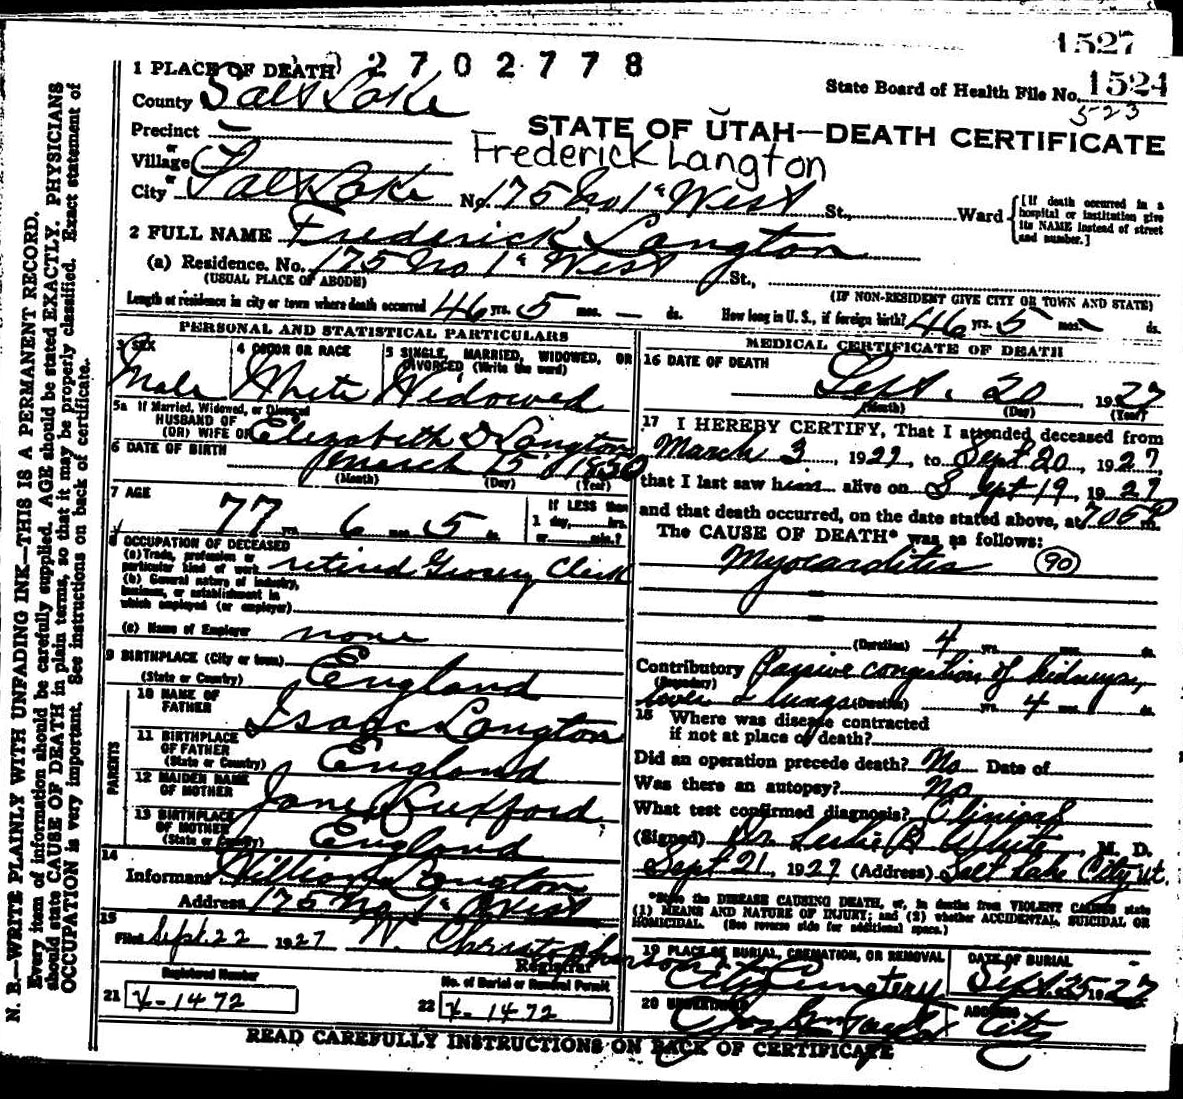 1527
1 PLACE OF DEATH 2702778
State Board of Health File No. 1524
523
County Salt Lake
STATE OF UTAH—DEATH CERTIFICATE
Precinct
or
Village
Frederick Langton
or
City Salt Lake No. 175 No 1st West St., Ward [If death occurred in a hospital or institution give its NAME instead of street and number.]
2 FULL NAME Frederick Langton
(a) Residence. No. 175 No 1st West St.,
(USUAL PLACE OF ABODE) (IF NON-RESIDENT GIVE CITY OR TOWN AND STATE)
Length of residence in city or town where death occurred 46 yrs. 5 mos. — ds. How long in U. S., if foreign birth? 46 yrs. 5 mos. ds.
PERSONAL AND STATISTICAL PARTICULARS
3 SEX 4 COLOR OR RACE 5 SINGLE, MARRIED, WIDOWED, OR DIVORCED (Write the word)
Male White Widowed
5a If Married, Widowed, or Divorced
HUSBAND OF
(OR) WIFE OF Elizabeth D Langton
6 DATE OF BIRTH March 15 1850
(Month) (Day) (Year)
7 AGE If LESS than
77 yrs. 6 mos. 5 ds. 1 day, hrs.
or min.?
8 OCCUPATION OF DECEASED
(a) Trade, profession or
particular kind of work retired Grocery Clerk
(b) General nature of industry,
business, or establishment in
which employed (or employer)
(c) Name of Employer none
9 BIRTHPLACE (City or town)
(State or Country) England
PARENTS
10 NAME OF
FATHER Isaac Langton
11 BIRTHPLACE
OF FATHER
(State or Country) England
12 MAIDEN NAME
OF MOTHER Jane
13 BIRTHPLACE
OF MOTHER
(State or Country) England
14
Informant William Langton
Address 175 No 1st West
15
Filed Sept. 22 1927 W. Christopherson
Registrar
Registered Number No. of Burial or Removal Permit
21 X-1472 22 X-1472
MEDICAL CERTIFICATE OF DEATH
16 DATE OF DEATH
Sept. 20, 1927
(Month) (Day) (Year)
17 I HEREBY CERTIFY, That I attended deceased from
March 3, 1927, to Sept 20, 1927,
that I last saw him alive on Sept 19, 1927
and that death occurred, on the date stated above, at 705 P m.
The CAUSE OF DEATH* was as follows:
Myocarditis 90
(Duration) 4 yrs. mos. ds.
Contributory Passive congestion of kidneys,
(Secondary) liver & lungs (Duration) yrs. 4 mos. ds.
18 Where was disease contracted
if not at place of death?
Did an operation precede death? No Date of
Was there an autopsy? No
What test confirmed diagnosis? Clinical
(Signed) Dr. Leslie B White, M. D.
Sept 21, 1927 (Address) Salt Lake City, Ut.
*State the DISEASE CAUSING DEATH, or, in deaths from VIOLENT CAUSES state
(1) MEANS AND NATURE OF INJURY; and (2) whether ACCIDENTAL, SUICIDAL OR
HOMICIDAL. (See reverse side for additional space.)
19 PLACE OF BURIAL, CREMATION, OR REMOVAL DATE OF BURIAL
City Cemetery Sept 25 1927
20 UNDERTAKER ADDRESS
Jos Wm Taylor City
READ CAREFULLY INSTRUCTIONS ON BACK OF CERTIFICATE
N. B.—WRITE PLAINLY WITH UNFADING INK—THIS IS A PERMANENT RECORD.
Every item of information should be carefully supplied. AGE should be stated EXACTLY. PHYSICIANS
should state CAUSE OF DEATH in plain terms, so that it may be properly classified. Exact statement of
OCCUPATION is very important. See instructions on back of certificate.